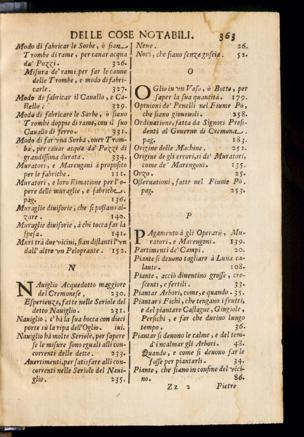 DELLE COSE NOTABILI. 363
Modo di fabricar le Sorbe, ò sian
Trombe di rame, per cavar acqua
da' Pozzi. 326.
Misura de' rami, per far le canne
delle Trombe, e modo di fabri-
carle. 327.
Modo di fabricare il Cavallo, e Ca-
stello. 329.
Modo di fabricare le Sorbe, ò siano
Trombe doppie di rame, con il suo
Cavallo di ferro. 331.
Modo di far una Sorba, over Trom-
ba, per cavar acqua da' Pozzi di
grandissima durata. 334.
Muratori, e Marengoni à proposito
per le fabriche. 111.
Muratori, e loro Estimatione per l'o-
pere delle muraglie, e fabriche,
pag. 136.
Muraglie divisorie, che si possano al-
zare. 140.
Muraglie divisorie, à chi tocca far la
spesa. 141.
Muri trà due vicini, sian distanti l'un
dall' altro un Peloprante. 152.
N
NAviglio Acquedotto maggiore
nel Cremonese. 230.
Esperienza, fatte nelle Seriole del
detto Naviglio. 231.
Naviglio, c' hà la sua bocca con dieci
porte sù la ripa dell'Oglio. ivi.
Naviglio hà molte Seriole, per sapere
se le misure sono eguali alli con-
correnti delle dette. 233.
Avertimenti, per satisfare alli con-
correnti nelle Seriole del Navi-
glio. 235.
Neve. 26.
Noci, che siano senza guscia. 52.
O
OGlio in un Vaso, ò Botte, per
saper la sua quantità. 179.
Opinioni de' Penelli nel Fiume Pò,
che siano giovevoli. 258.
Ordinationi, fatta da Signori Presi-
denti al Governo di Cremona.
pag. 183.
Origine delle Machine. 252.
Origine de gli errori, de' Muratori,
come de' Marengoni. 135.
Orzo. 25.
Osservationi, fatte nel Fiume Pò,
pag. 253.
P
PAgamento à gli Operarij, Mu-
ratori, e Marengoni. 139.
Partimenti de' Campi. 20.
Piante si devono tagliare à Luna ca-
lante. 108.
Piante, acciò diventino grosse, cre-
scenti, e fertili. 33.
Piantar Arbori, come, e quando. 35.
Piantar i Fichi, che tengano i frutti,
e del piantare Castagne, Gingiole,
Persichi, e far che durino lungo
tempo. 36.
Piantar si devono le calme, e del tem-
po d'incalmar gli Arbori. 48.
Quando, e come si devono far le
fosse per piantarli. 34.
Piante, che siano in confine del vici-
no. 86.
Zz 2 Pietre